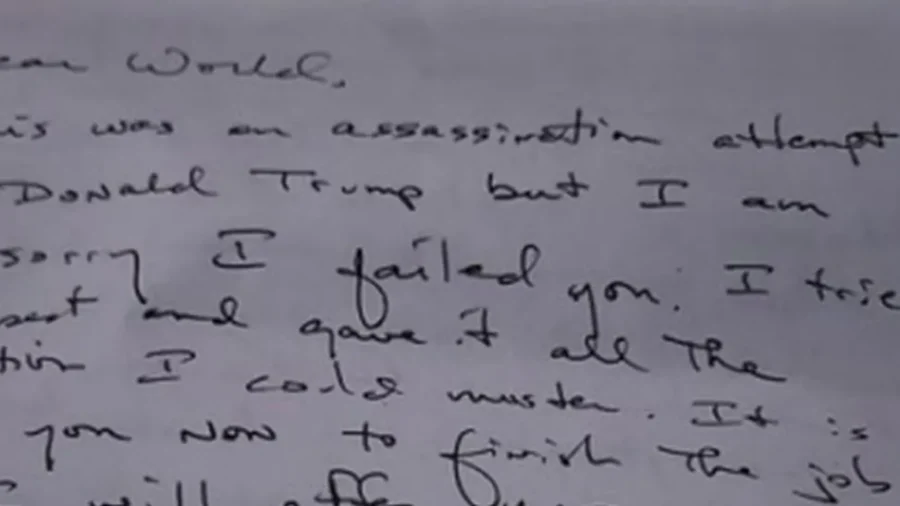 ear World,
is was an assassination attempt
Donald Trump but I am
sorry I failed you. I trie
best and gave it all the
tion I could muster. It is
you now to finish the job
I will offe